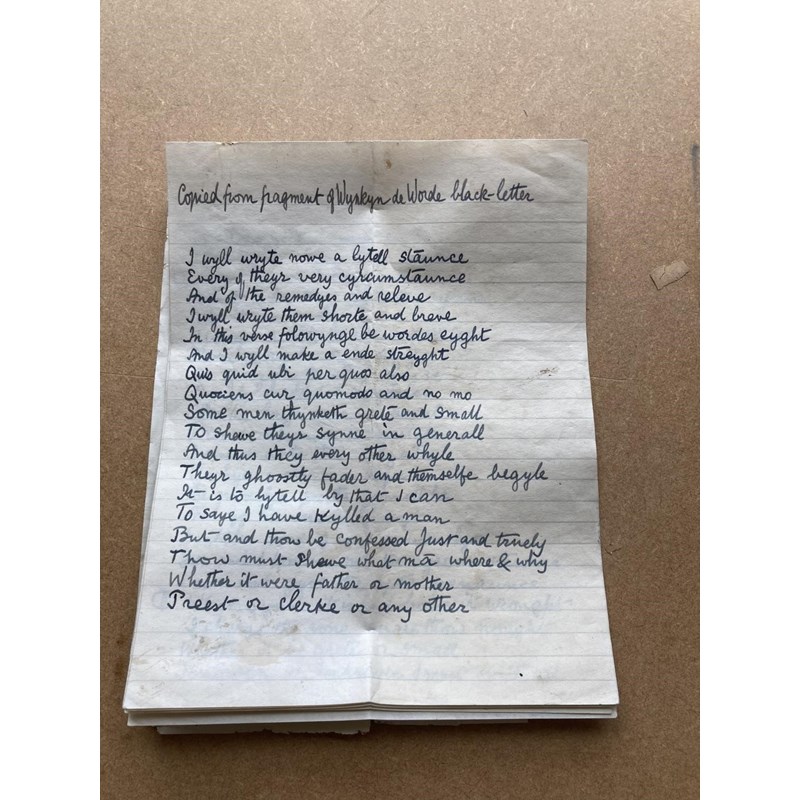 Copied from fragment of Wynkyn de Worde black-letter
I wyll wryte nowe a lytell stāunce
Every of theyr very cyrcumstaunce
And of the remedyes and releve
I wyll wryte them shorte and breve
In this verse folowynge be wordes eyght
And I wyll make a ende streyght
Quis quid ubi per quos also
Quociens cur quomodo and no mo
Some men thynketh grete and small
To shewe theyr synne in generall
And thus they every other whyle
Theyr ghoostly fader and themselfe begyle
It is to lytell by that I can
To saye I have kylled a man
But and thow be confessed Just and truely
Thow must shewe what mā where & why
Whether it were father or mother
Preest or clerke or any other